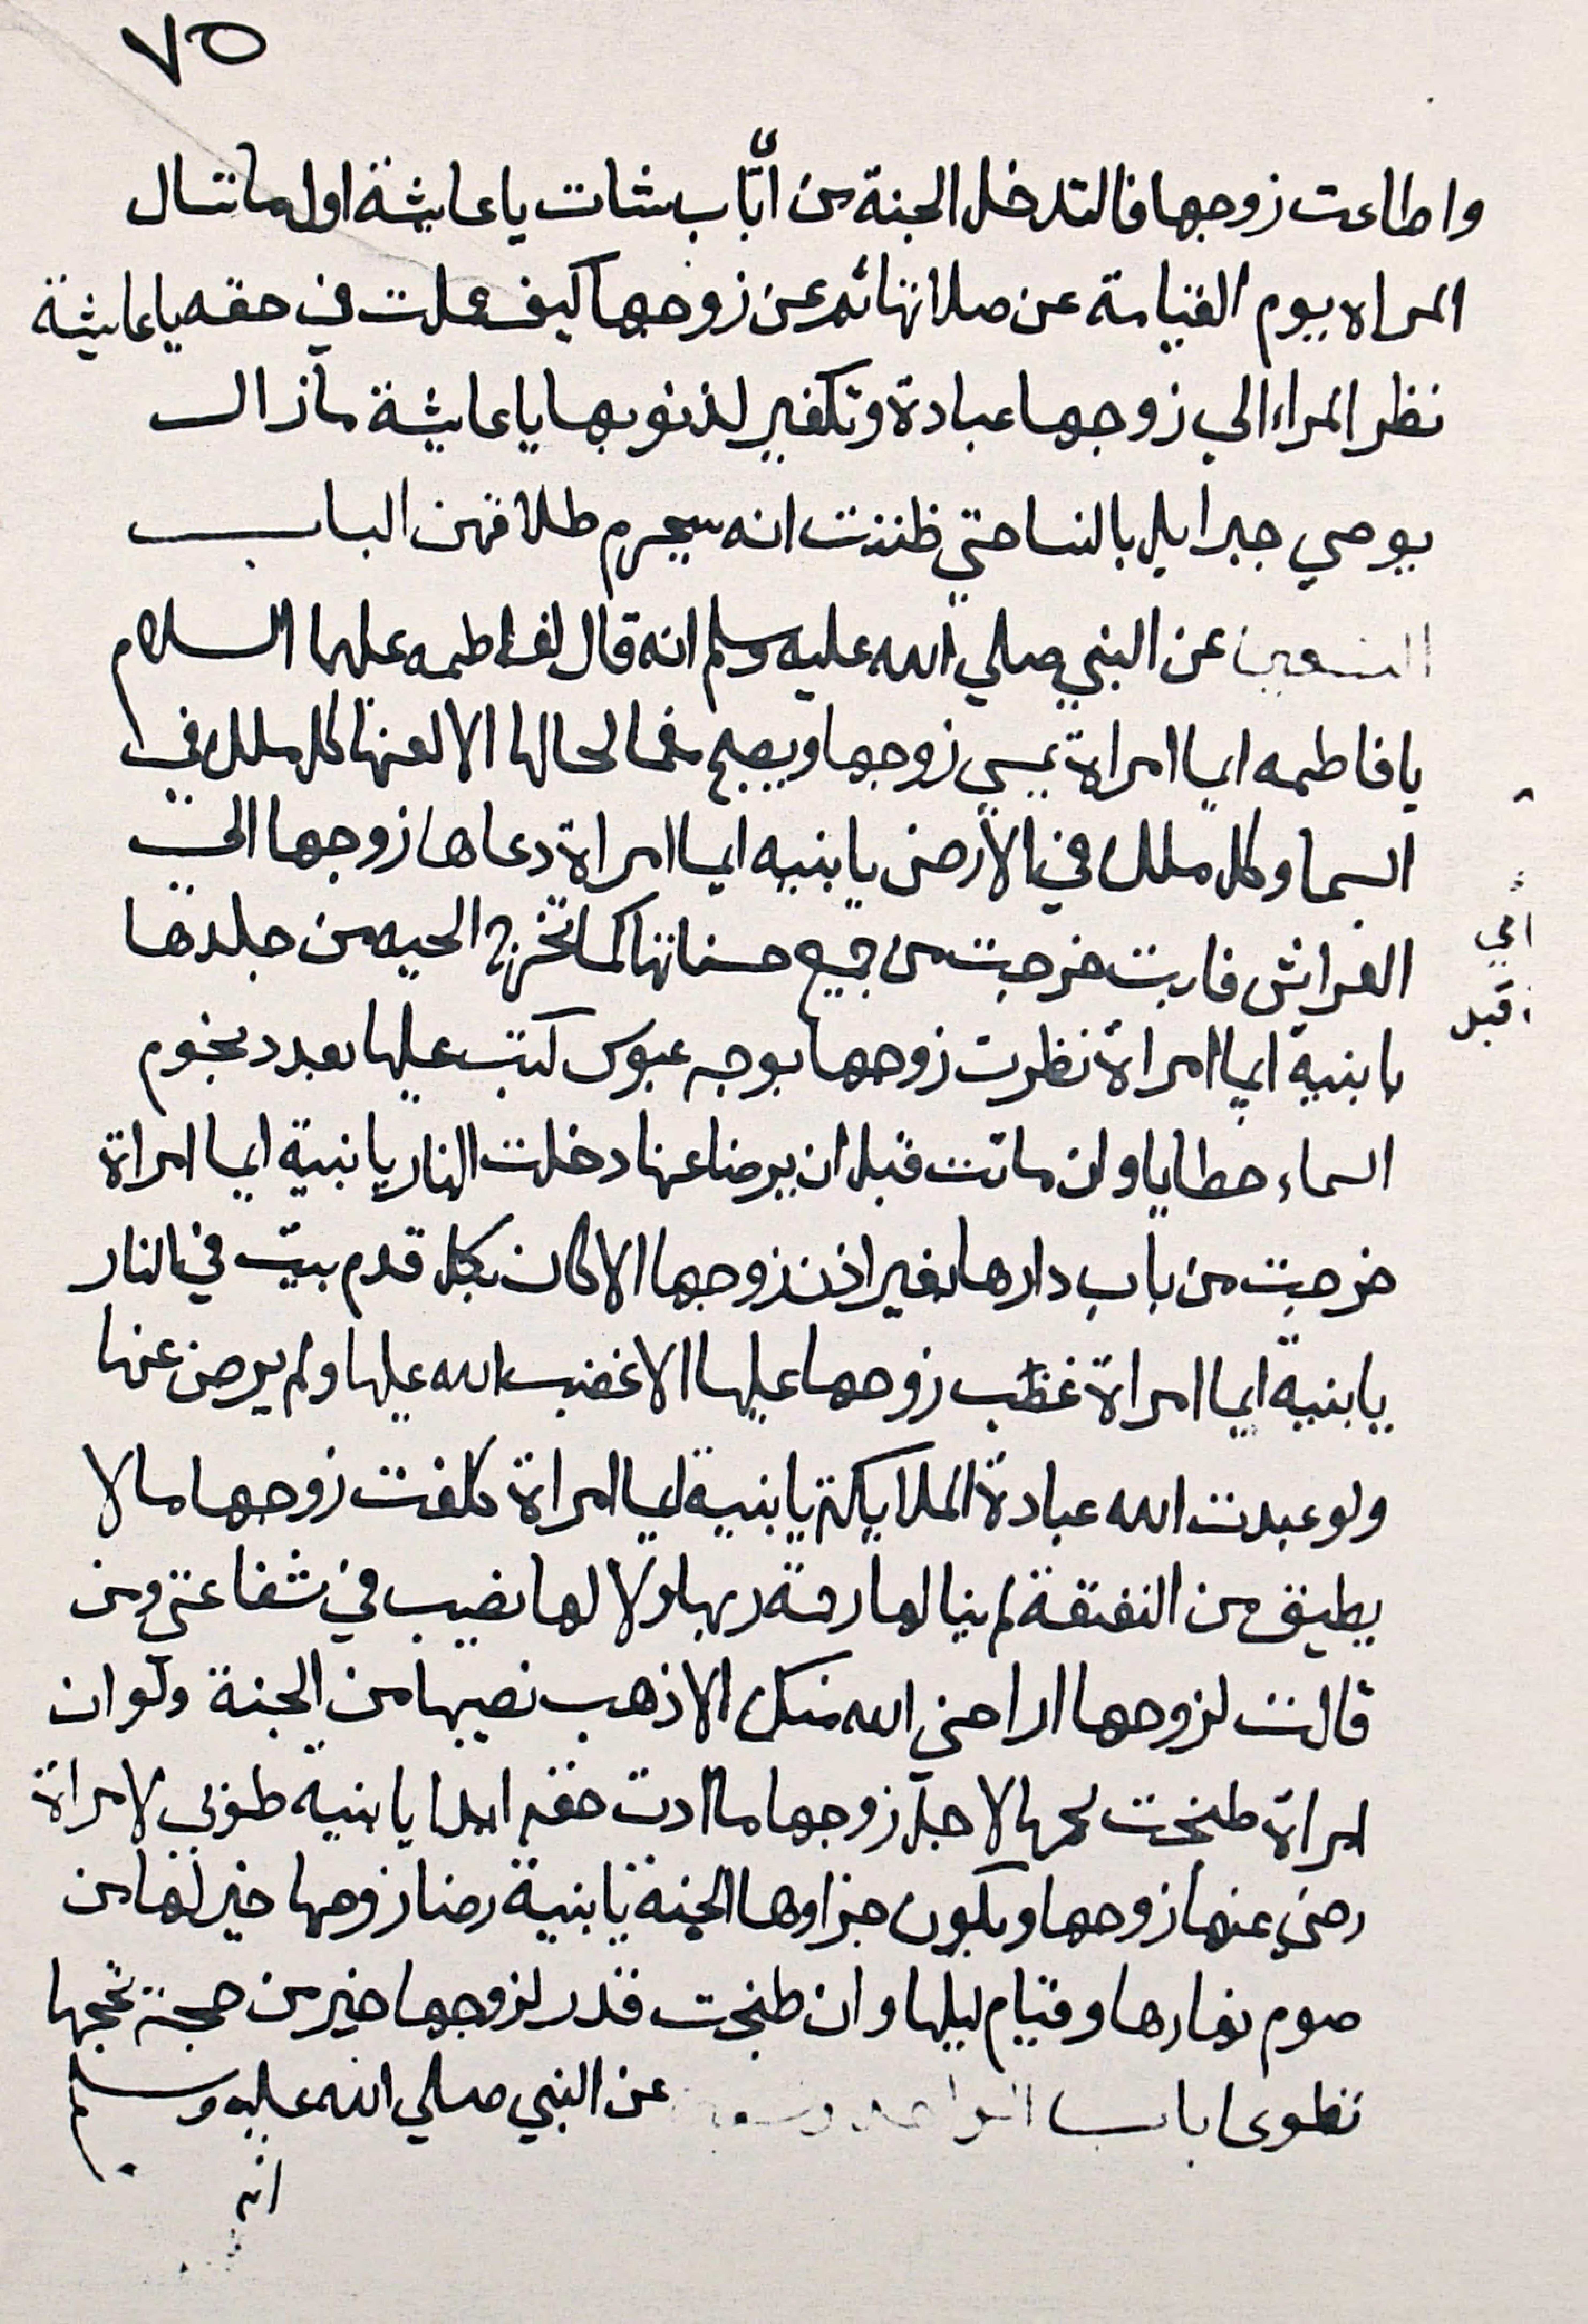 ٧٥
واطاعت زوجها فالتدخل الجنة من أيّ باب شات يا عايشة اول ما تسال
المراه يوم القيامة عن صلاتها ثم عن زوجها كيف عملت في حقه يا عايشة
نظر المراه الي زوجها عبادة وتكفير لذنوبها يا عايشة ما زال
يوصي جبرايل بالنسا حتي ظننت انه سيحرم طلاقهن الباب
عن النبي صلي الله عليه وسلم انه قال لفاطمه عليها السلام
يا فاطمه ايما امراة يمسي زوجها ويصبح الا لعنها كل ملك في
السما وكل ملك في الارض يا بنيه ايما امراة دعاها زوجها الي
الفراش فابت خرجت من جميع حسناتها كما تخرج الحيه من جلدها
يا بنية ايما امراة نظرت زوجها بوجه عبوس كتب عليها بعدد نجوم
السماء خطايا وان ماتت قبل ان يرضا عنها دخلت النار يا بنية ايما امراة
خرجت من باب دارها بغير اذن زوجها الا كان بكل قدم بيت في النار
يا بنية ايما امراة غظب زوجها عليها الا غضب الله عليها ولم يرض عنها
ولو عبدت الله عبادة الملايكة يا بنية ايما امراة كلفت زوجها ما لا
يطيق من النفقة لم ينالها رحمة ربها ولا لها نصيب في شفاعتي ومن
قالت لزوجها اراحني الله منك الا ذهب نصيبها من الجنة ولو ان
امراة طبخت لحمها لاجل زوجها ما ادت حقه ابدا يا بنية طوبي لامراة
رضي عنها زوجها ويكون جزاوها الجنة يا بنية رضا زوجها خير لها من
صوم نهارها وقيام ليلها وان طبخت قدر لزوجها خير من حجة تحجها
باب عن النبي صلي الله عليه وسلم
انه
قبل